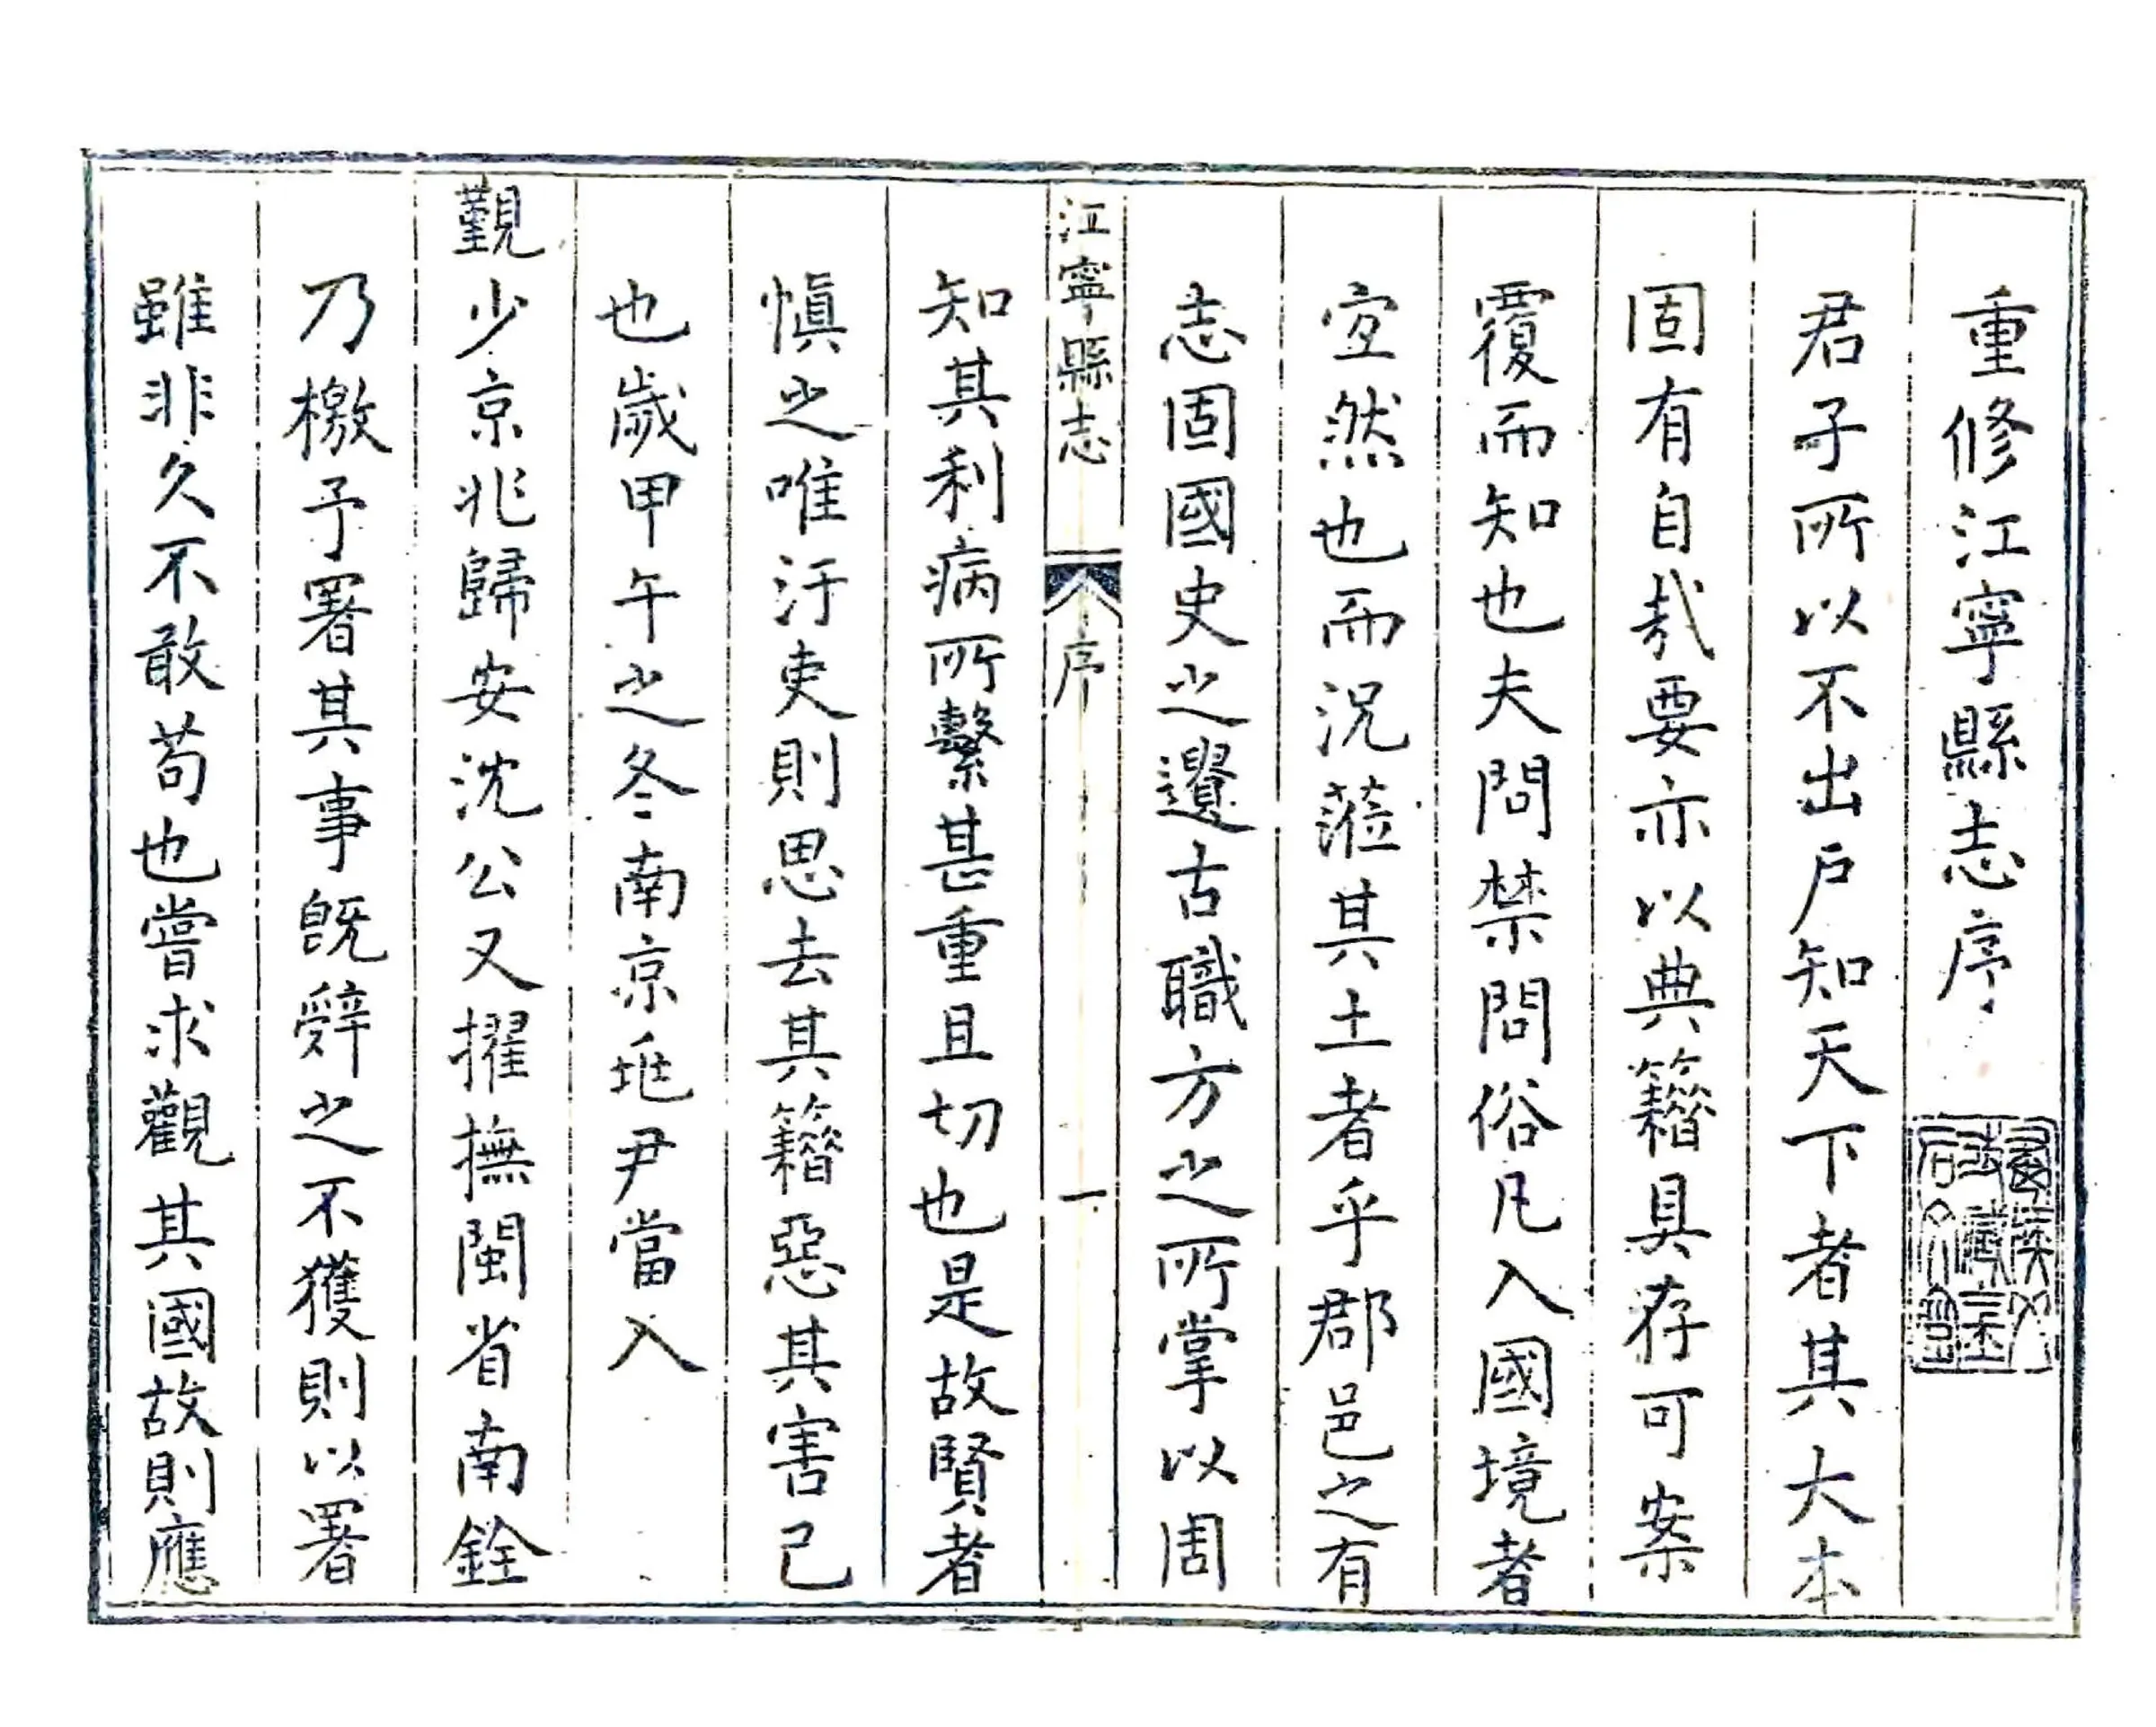 重修江寧縣志序
君子所以不出戶知天下者其大本
固有自㦲要亦以典籍具存可案
覆而知也夫問禁問俗凡入國境者
宜然也而況蒞其土者乎郡邑之有
志固國史之邊古職方之所掌以周
江寧縣志 序 一
知其利病所繫甚重且切也是故賢者
慎之唯汙吏則思去其籍惡其害己
也歲甲午之冬南京兆尹當入
覲少京兆歸安沈公又擢撫閩省南銓
乃檄予署其事旣辤之不獲則以署
雖非久不敢苟也嘗求觀其國故則應